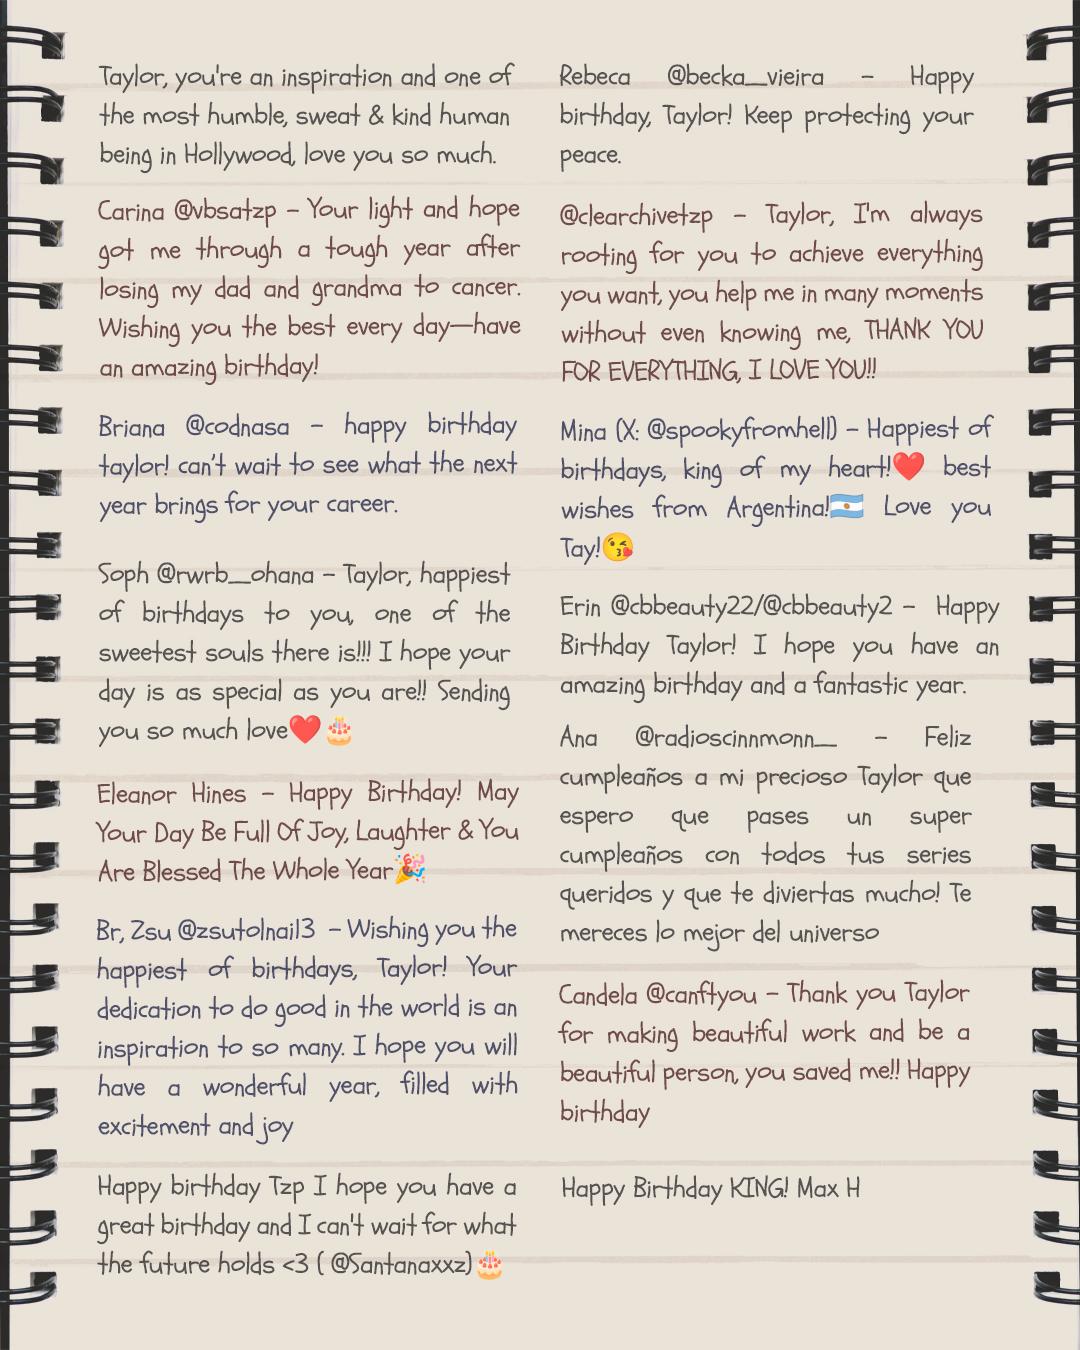 Taylor, you're an inspiration and one of
the most humble, sweat & kind human
being in Hollywood, love you so much.
Carina @vbsatzp – Your light and hope
got me through a tough year after
losing my dad and grandma to cancer.
Wishing you the best every day—have
an amazing birthday!
Briana @codnasa – happy birthday
taylor! can't wait to see what the next
year brings for your career.
Soph @rwrb__ohana – Taylor, happiest
of birthdays to you, one of the
sweetest souls there is!!! I hope your
day is as special as you are!! Sending
you so much love❤️🎂
Eleanor Hines – Happy Birthday! May
Your Day Be Full Of Joy, Laughter & You
Are Blessed The Whole Year🎉
Br, Zsu @zsutolnai13 – Wishing you the
happiest of birthdays, Taylor! Your
dedication to do good in the world is an
inspiration to so many. I hope you will
have a wonderful year, filled with
excitement and joy
Happy birthday Tzp I hope you have a
great birthday and I can't wait for what
the future holds <3 ( @Santanaxxz)🎂
Rebeca @becka__vieira – Happy
birthday, Taylor! Keep protecting your
peace.
@clearchivetzp – Taylor, I'm always
rooting for you to achieve everything
you want, you help me in many moments
without even knowing me, THANK YOU
FOR EVERYTHING, I LOVE YOU!!
Mina (X: @spookyfromhell) – Happiest of
birthdays, king of my heart!❤️ best
wishes from Argentina!🇦🇷 Love you
Tay!😘
Erin @cbbeauty22/@cbbeauty2 – Happy
Birthday Taylor! I hope you have an
amazing birthday and a fantastic year.
Ana @radioscinnmonn__ – Feliz
cumpleaños a mi precioso Taylor que
espero que pases un super
cumpleaños con todos tus series
queridos y que te diviertas mucho! Te
mereces lo mejor del universo
Candela @canftyou – Thank you Taylor
for making beautiful work and be a
beautiful person, you saved me!! Happy
birthday
Happy Birthday KING! Max H